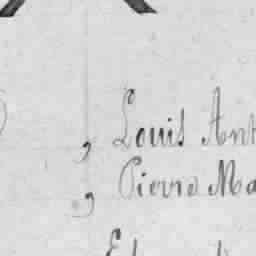 , Louis Ant
, Pierre Ma